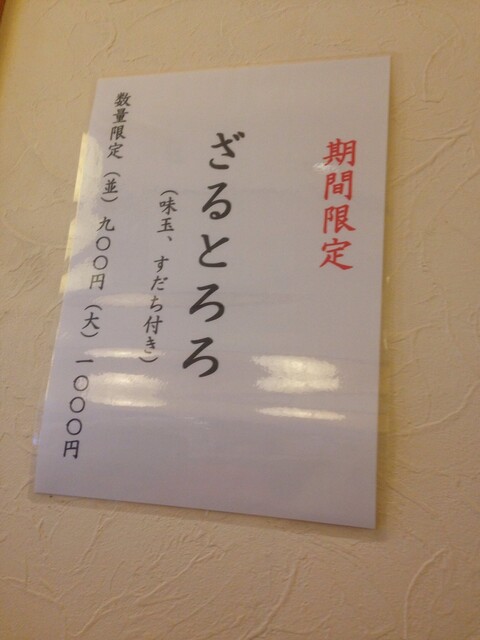 期間限定
ざるとろろ
（味玉、すだち付き）
数量限定（並）九〇〇円（大）一〇〇〇円